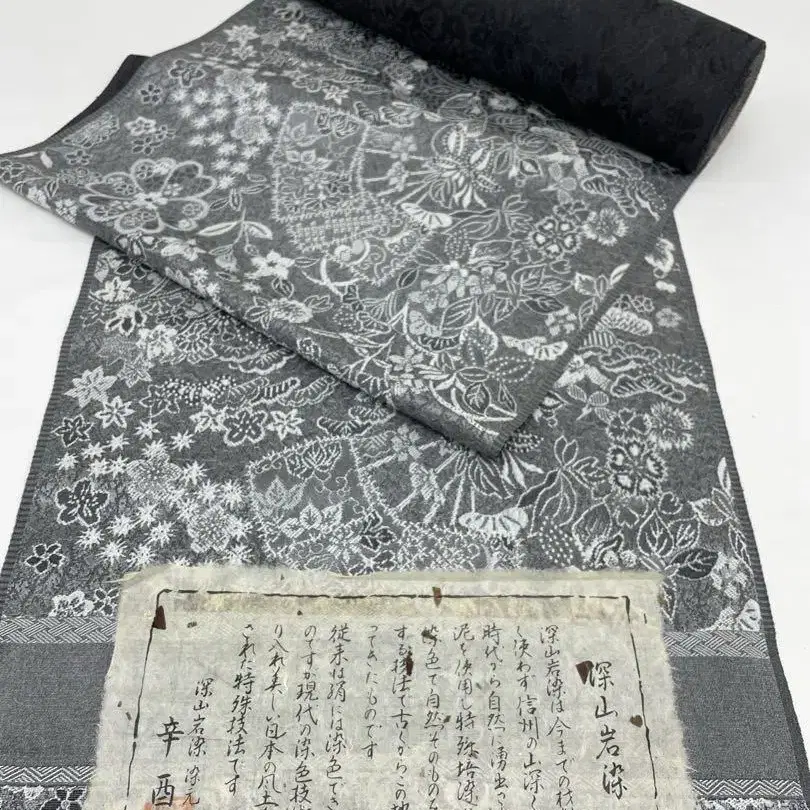 深山岩染
深山岩染は今までの材
く使わず信州の山深
時代から自然に湧出
泥を使用し特殊培染
染色で自然そのものを
する技法で古くからこの地
ってきたものです
従来は絹には染色でき
のですが現代の染色技
り入れ美しい日本の風土
された特殊技法です
深山岩染染元
辛酉